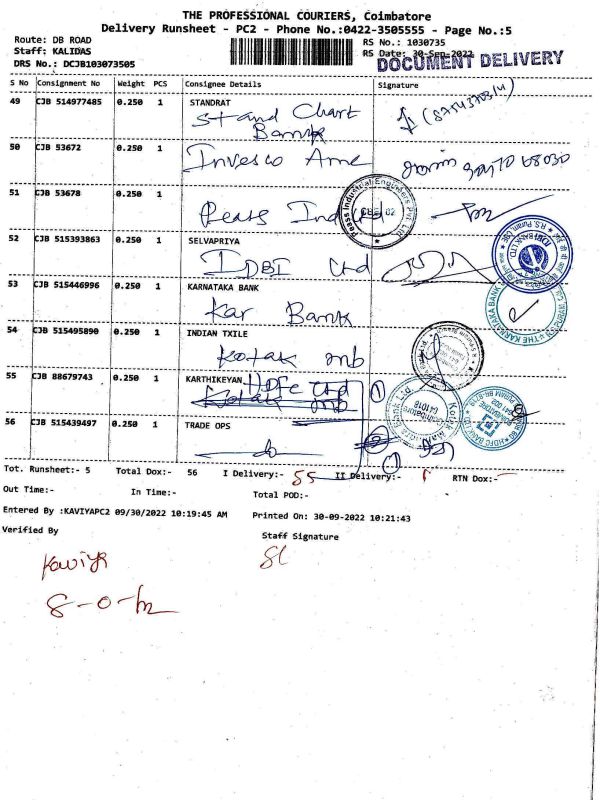 THE PROFESSIONAL COURIERS, Coimbatore
Delivery Runsheet - PC2 - Phone No.:0422-3505555 - Page No.:5
Route: DB ROAD
RS No.: 1030735
Staff: KALIDAS
RS Date: 30-Sep-2022
DOCUMENT DELIVERY
DRS No.: DCJB103073505
S No Consignment No Weight PCS Consignee Details Signature
49 CJB 514977485 0.250 1 STANDRAT
Stand Chart
Bank
50 CJB 53672 0.250 1
Invesco Ame
51 CJB 53678 0.250 1
Peass Ind Ltd
52 CJB 515393863 0.250 1 SELVAPRIYA
IDBI Ltd
53 CJB 515446996 0.250 1 KARNATAKA BANK
Kar Bank
54 CJB 515495890 0.250 1 INDIAN TXILE
Kotak mb
55 CJB 88679743 0.250 1 KARTHIKEYAN HDFC Ltd
Kotak mb
56 CJB 515439497 0.250 1 TRADE OPS
do
Tot. Runsheet:- 5 Total Dox:- 56 I Delivery:- 55 II Delivery:- 1 RTN Dox:-
Out Time:- In Time:- Total POD:-
Entered By :KAVIYAPC2 09/30/2022 10:19:45 AM Printed On: 30-09-2022 10:21:43
Verified By Staff Signature
Kaviya